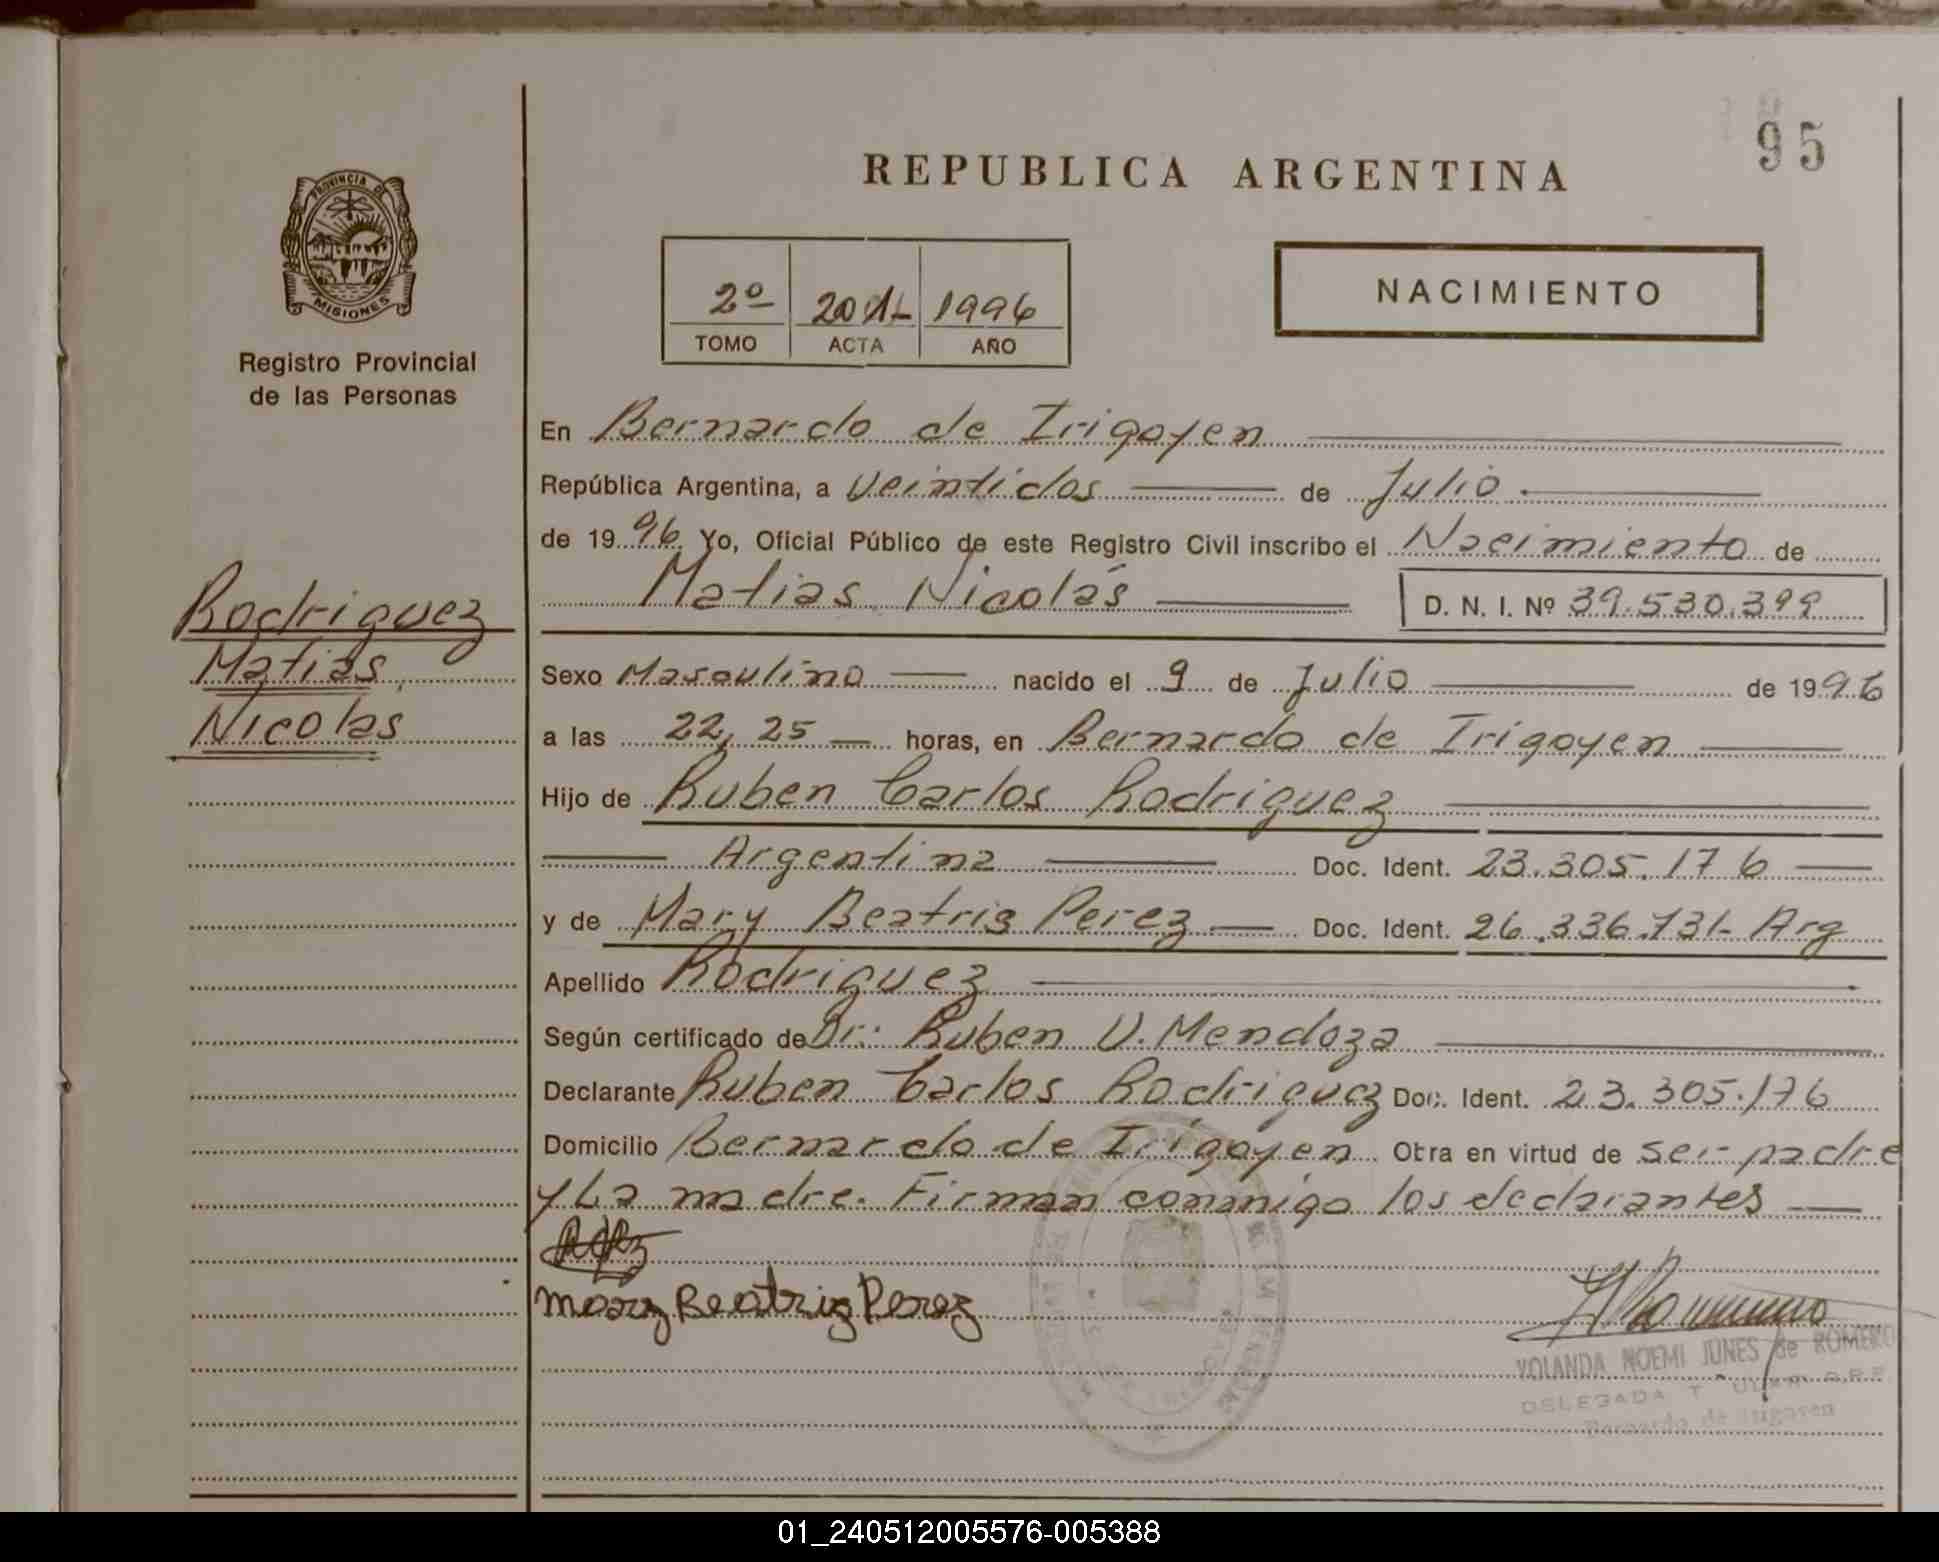 95
REPUBLICA ARGENTINA
PROVINCIA DE
MISIONES
Registro Provincial
de las Personas
2º 1996
TOMO ACTA AÑO
NACIMIENTO
En Bernardo de Irigoyen
República Argentina, a Veintidos de Julio
de 1996 Yo, Oficial Público de este Registro Civil inscribo el Nacimiento de
Matias Nicolás D. N. I. Nº 39.530.399
Rodriguez
Matias
Nicolas
Sexo Masculino nacido el 9 de Julio de 1996
a las 22,25 horas, en Bernardo de Irigoyen
Hijo de Ruben Carlos Rodriguez
Argentina Doc. Ident. 23.305.176
y de Mary Beatris Perez Doc. Ident. 26.336.731- Arg
Apellido Rodriguez
Según certificado de Dr: Ruben V. Mendoza
Declarante Ruben Carlos Rodriguez Doc. Ident. 23.305.176
Domicilio Bernardo de Irigoyen Otra en virtud de ser padre
y La madre. Firman conmigo los declarantes
Mary Beatriz Perez
YOLANDA NOEMI JUNES de ROMERO
DELEGADA TITULAR R.P.P.
Bernardo de Irigoyen
01_240512005576-005388